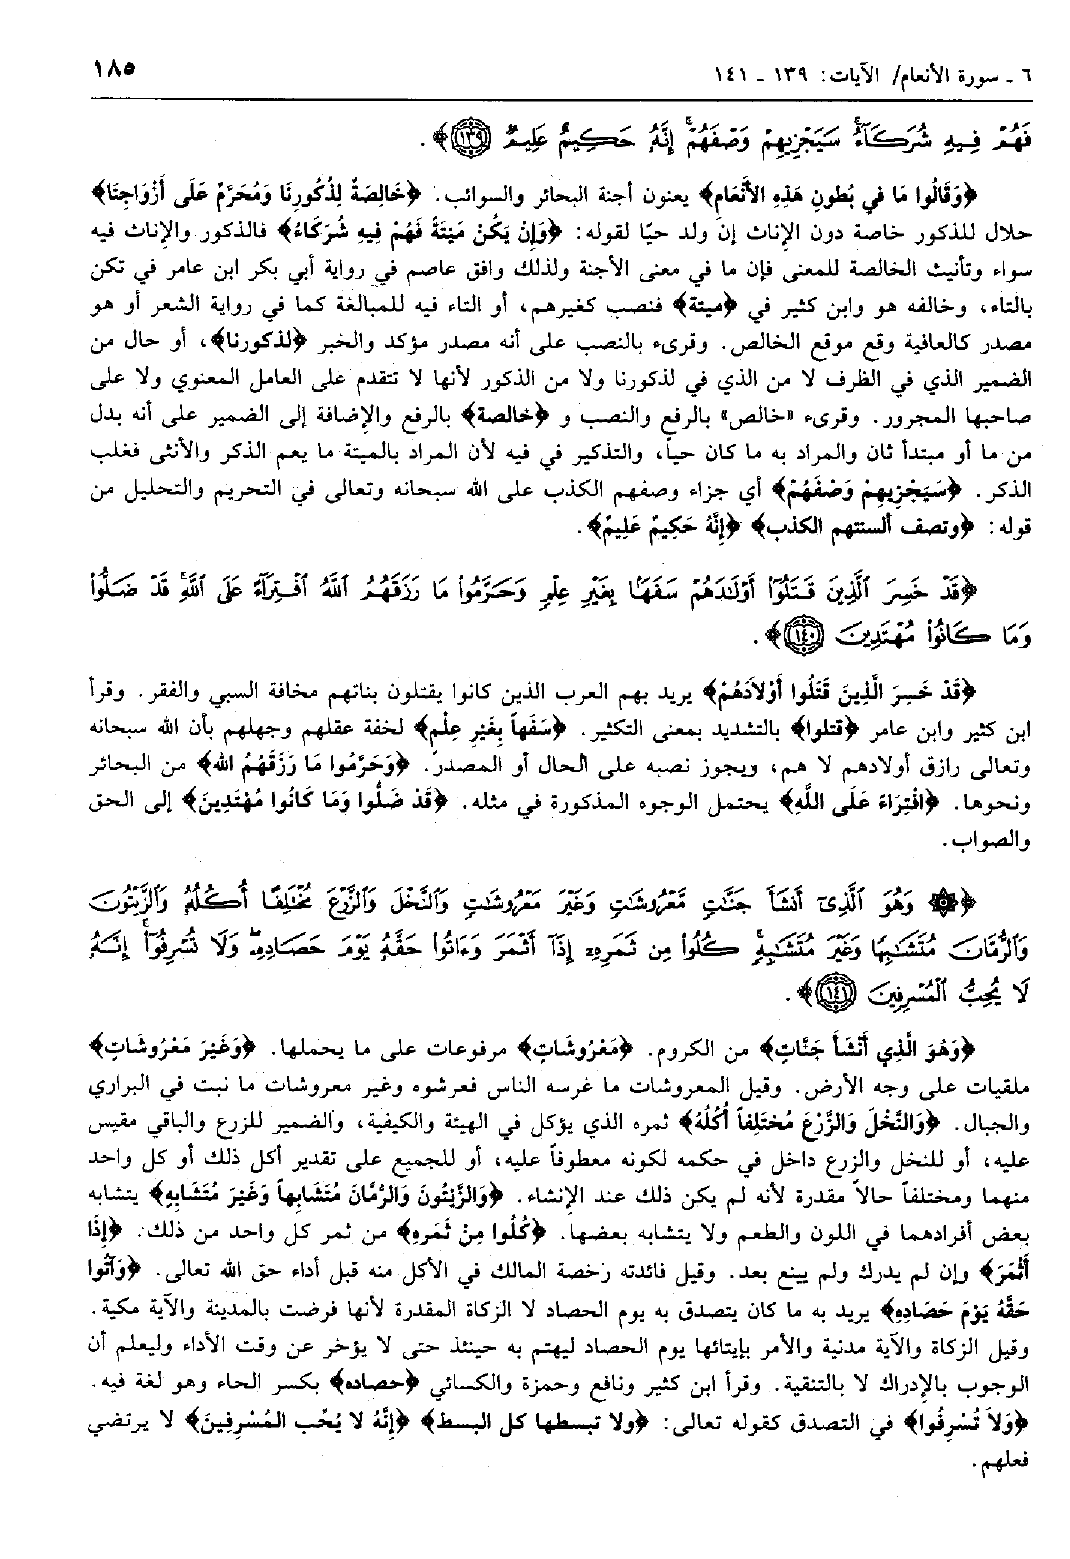 ٦ ـ سورة الأنعام/ الآيات: ١٣٩ ـ ١٤١
١٨٥
فَهُمْ فِيهِ شُرَكَاءُ سَيَجْزِيهِمْ وَصْفَهُمْ إِنَّهُ حَكِيمٌ عَلِيمٌ ﴿١٣٩﴾.
﴿وَقَالُوا مَا في بُطونِ هَذِهِ الأنْعام﴾ يعنون أجنة البحائر والسوائب. ﴿خَالِصَةٌ لِذُكورِنَا وَمُحَرَّمٌ عَلَى أَزْوَاجِنَا﴾
حلال للذكور خاصة دون الإناث إن ولد حيّا لقوله: ﴿وَإِنْ يَكُنْ مَيْتَةً فَهُمْ فِيهِ شُرَكَاءُ﴾ فالذكور والإناث فيه
سواء وتأنيث الخالصة للمعنى فإن ما في معنى الأجنة ولذلك وافق عاصم في رواية أبي بكر ابن عامر في تكن
بالتاء، وخالفه هو وابن كثير في ﴿ميتة﴾ فنصب كغيرهم، أو التاء فيه للمبالغة كما في رواية الشعر أو هو
مصدر كالعافية وقع موقع الخالص. وقرىء بالنصب على أنه مصدر مؤكد والخبر ﴿لذكورنا﴾، أو حال من
الضمير الذي في الظرف لا من الذي في لذكورنا ولا من الذكور لأنها لا تتقدم على العامل المعنوي ولا على
صاحبها المجرور. وقرىء «خالص» بالرفع والنصب و ﴿خالصة﴾ بالرفع والإضافة إلى الضمير على أنه بدل
من ما أو مبتدأ ثان والمراد به ما كان حياً، والتذكير في فيه لأن المراد بالميتة ما يعم الذكر والأنثى فغلب
الذكر. ﴿سَيَجْزِيهِمْ وَصْفَهُمْ﴾ أي جزاء وصفهم الكذب على الله سبحانه وتعالى في التحريم والتحليل من
قوله: ﴿وتصف ألسنتهم الكذب﴾ ﴿إِنَّهُ حَكِيمٌ عَلِيمٌ﴾.
﴿قَدْ خَسِرَ ٱلَّذِينَ قَتَلُوٓا۟ أَوْلَـٰدَهُمْ سَفَهًۢا بِغَيْرِ عِلْمٍ وَحَرَّمُوا۟ مَا رَزَقَهُمُ ٱللَّهُ ٱفْتِرَآءً عَلَى ٱللَّهِ قَدْ ضَلُّوا۟
وَمَا كَانُوا۟ مُهْتَدِينَ ﴿١٤٠﴾.
﴿قَدْ خَسِرَ الَّذِينَ قَتَلُوا أَوْلاَدَهُمْ﴾ يريد بهم العرب الذين كانوا يقتلون بناتهم مخافة السبي والفقر. وقرأ
ابن كثير وابن عامر ﴿قتلوا﴾ بالتشديد بمعنى التكثير. ﴿سَفَهاً بِغَيْرِ عِلْمٍ﴾ لخفة عقلهم وجهلهم بأن الله سبحانه
وتعالى رازق أولادهم لا هم، ويجوز نصبه على الحال أو المصدر. ﴿وَحَرَّمُوا مَا رَزَقَهُمُ الله﴾ من البحائر
ونحوها. ﴿افْتِرَاءً عَلَى اللَّهِ﴾ يحتمل الوجوه المذكورة في مثله. ﴿قَدْ ضَلُوا وَمَا كَانُوا مُهْتَدِينَ﴾ إلى الحق
والصواب.
﴿۞ وَهُوَ ٱلَّذِىٓ أَنشَأَ جَنَّـٰتٍ مَّعْرُوشَـٰتٍ وَغَيْرَ مَعْرُوشَـٰتٍ وَٱلنَّخْلَ وَٱلزَّرْعَ مُخْتَلِفًا أُكُلُهُۥ وَٱلزَّيْتُونَ
وَٱلرُّمَّانَ مُتَشَـٰبِهًا وَغَيْرَ مُتَشَـٰبِهٍ كُلُوا۟ مِن ثَمَرِهِۦٓ إِذَآ أَثْمَرَ وَءَاتُوا۟ حَقَّهُۥ يَوْمَ حَصَادِهِۦ وَلَا تُسْرِفُوٓا۟ إِنَّهُۥ
لَا يُحِبُّ ٱلْمُسْرِفِينَ ﴿١٤١﴾.
﴿وَهُوَ الَّذِي أَنْشَأَ جَنَّاتٍ﴾ من الكروم. ﴿مَعْرُوشَاتٍ﴾ مرفوعات على ما يحملها. ﴿وَغَيْرَ مَعْرُوشَاتٍ﴾
ملقيات على وجه الأرض. وقيل المعروشات ما غرسه الناس فعرشوه وغير معروشات ما نبت في البراري
والجبال. ﴿وَالنَّخْلَ وَالزَّرْعَ مُخْتَلِفاً أُكُلُهُ﴾ ثمره الذي يؤكل في الهيئة والكيفية، والضمير للزرع والباقي مقيس
عليه، أو للنخل والزرع داخل في حكمه لكونه معطوفاً عليه، أو للجميع على تقدير أكل ذلك أو كل واحد
منهما ومختلفاً حالاً مقدرة لأنه لم يكن ذلك عند الإنشاء. ﴿وَالزَّيْتُونَ وَالرُّمَّانَ مُتَشَابِهاً وَغَيْرَ مُتَشَابِهٍ﴾ يتشابه
بعض أفرادهما في اللون والطعم ولا يتشابه بعضها. ﴿كُلُوا مِنْ ثَمَرِهِ﴾ من ثمر كل واحد من ذلك. ﴿إِذَا
أَثْمَرَ﴾ وإن لم يدرك ولم يينع بعد. وقيل فائدته رخصة المالك في الأكل منه قبل أداء حق الله تعالى. ﴿وَآتُوا
حَقَّهُ يَوْمَ حَصَادِهِ﴾ يريد به ما كان يتصدق به يوم الحصاد لا الزكاة المقدرة لأنها فرضت بالمدينة والآية مكية.
وقيل الزكاة والآية مدنية والأمر بإيتائها يوم الحصاد ليهتم به حينئذ حتى لا يؤخر عن وقت الأداء وليعلم أن
الوجوب بالإدراك لا بالتنقية. وقرأ ابن كثير ونافع وحمزة والكسائي ﴿حصاده﴾ بكسر الحاء وهو لغة فيه.
﴿وَلاَ تُسْرِفُوا﴾ في التصدق كقوله تعالى: ﴿ولا تبسطها كل البسط﴾ ﴿إِنَّهُ لا يُحُب المُسْرِفِينَ﴾ لا يرتضي
فعلهم.